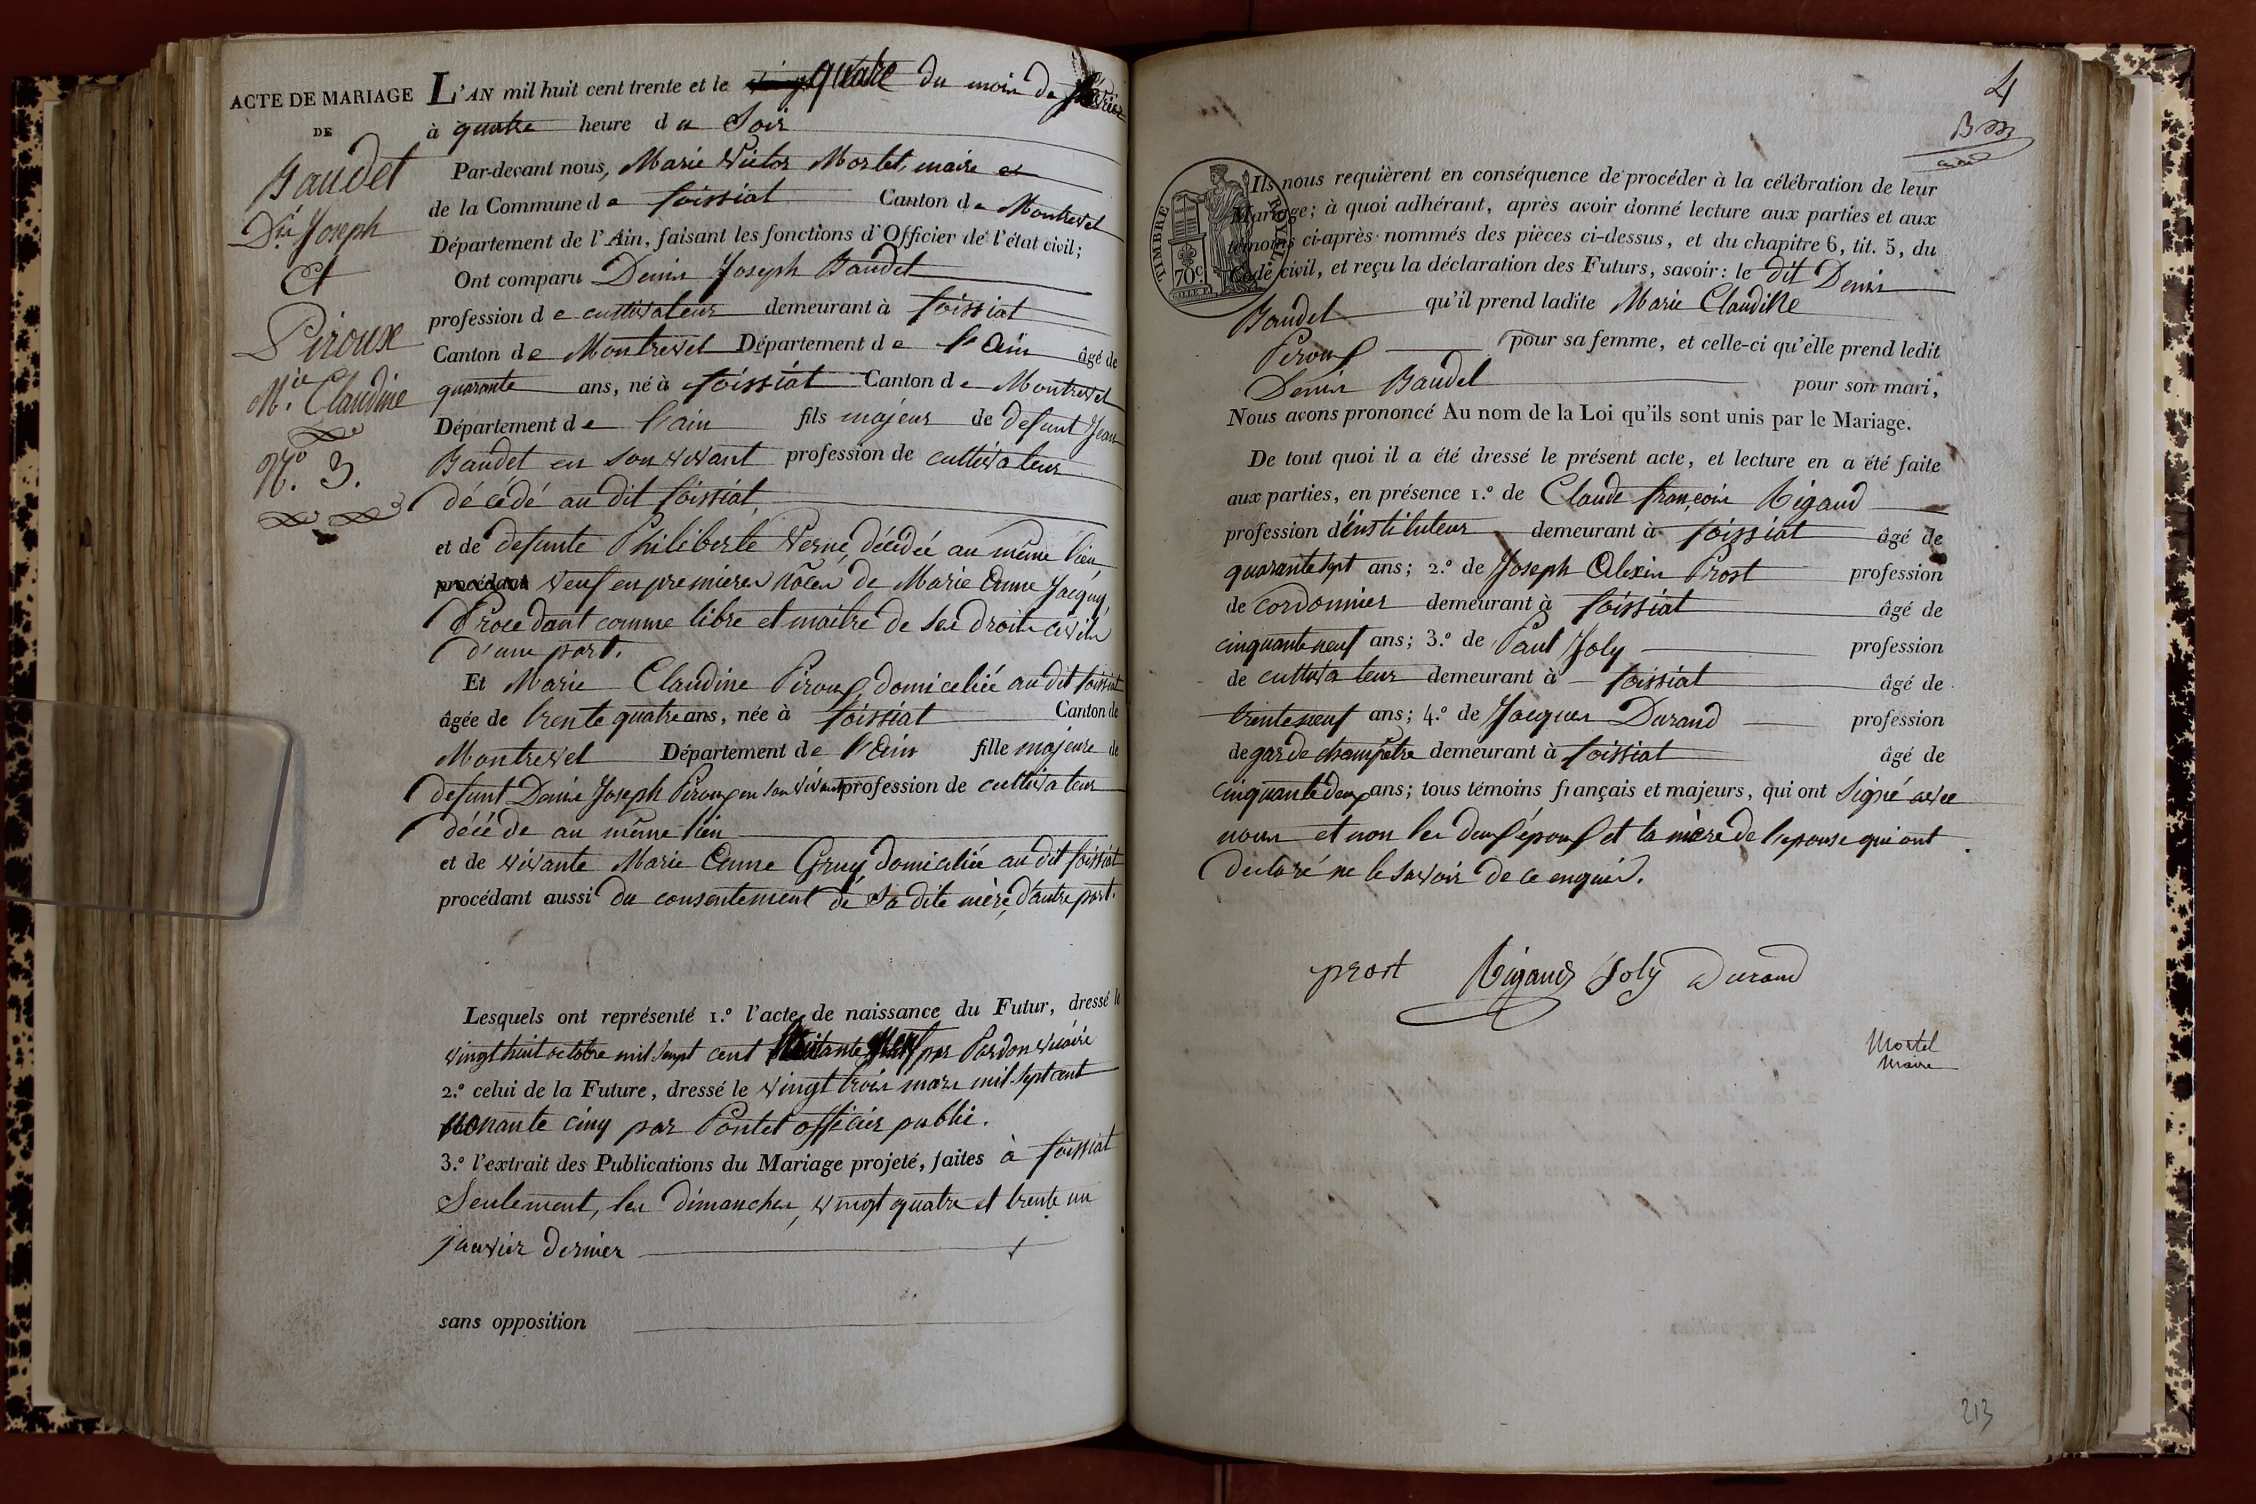 ACTE DE MARIAGE
DE
Baudet
D.is Joseph
Et
Piroux
M.ie Claudine
N.o 3.
L'AN mil huit cent trente et le quatre du mois de février
à quatre heure du Soir
Par-devant nous, Marie Victor Mortel, maire
de la Commune de foissiat Canton de Montrevel
Département de l'Ain, faisant les fonctions d'Officier de l'état civil;
Ont comparu Denis Joseph Baudet
profession de cultivateur demeurant à foissiat
Canton de Montrevel Département de l'Ain âgé de
quarante ans, né à foissiat Canton de Montrevel
Département de l'ain fils majeur de defunt Jean
Baudet en son vivant profession de cultivateur
décédé au dit foissiat,
et de defunte Philiberte Verne, décédée au même lieu,
procédant veuf en premieres nôces de Marie Anne Jacquy,
Procedant comme libre et maitre de ses droits civils
d'une part.
Et Marie Claudine Piroux, domiciliée au dit foissiat
âgée de trente quatre ans, née à foissiat Canton de
Montrevel Département de l'Ain fille majeure de
defunt Denis Joseph Piroux en son vivant profession de cultivateur
décédé au même lieu
et de vivante Marie Anne Gruy domiciliée au dit foissiat
procédant aussi du consentement de Sa dite mère, d'autre part.
Lesquels ont représenté 1.o l'acte de naissance du Futur, dressé le
vingt huit octobre mil sept cent par Pardon vicaire
2.o celui de la Future, dressé le vingt trois mars mil sept cent
nonante cinq par Pontet officier public.
3.o l'extrait des Publications du Mariage projeté, faites à foissiat
Seulement, les dimanches, vingt quatre et trente un
janvier dernier
sans opposition
4
TIMBRE ROYAL
70c.
Ils nous requièrent en conséquence de procéder à la célébration de leur
Mariage; à quoi adhérant, après avoir donné lecture aux parties et aux
témoins ci-après nommés des pièces ci-dessus, et du chapitre 6, tit. 5, du
Code civil, et reçu la déclaration des Futurs, savoir: le dit Denis
Baudet qu'il prend ladite Marie Claudine
Piroux pour sa femme, et celle-ci qu'elle prend ledit
Denis Baudet pour son mari,
Nous avons prononcé Au nom de la Loi qu'ils sont unis par le Mariage.
De tout quoi il a été dressé le présent acte, et lecture en a été faite
aux parties, en présence 1.o de Claude françois Rigaud
profession d'instituteur demeurant à foissiat âgé de
quarante sept ans; 2.o de Joseph Alexis Prost profession
de cordonnier demeurant à foissiat âgé de
cinquante neuf ans; 3.o de Paul Joly profession
de cultivateur demeurant à foissiat âgé de
trente neuf ans; 4.o de Jacques Durand profession
de garde champêtre demeurant à foissiat âgé de
cinquante deux ans; tous témoins français et majeurs, qui ont Signé avec
nous et non les deux époux et la mère de l'epouse qui ont
declaré ne le savoir de ce enquis.
prost Rigaud Joly Durand
Mortel
Maire
213